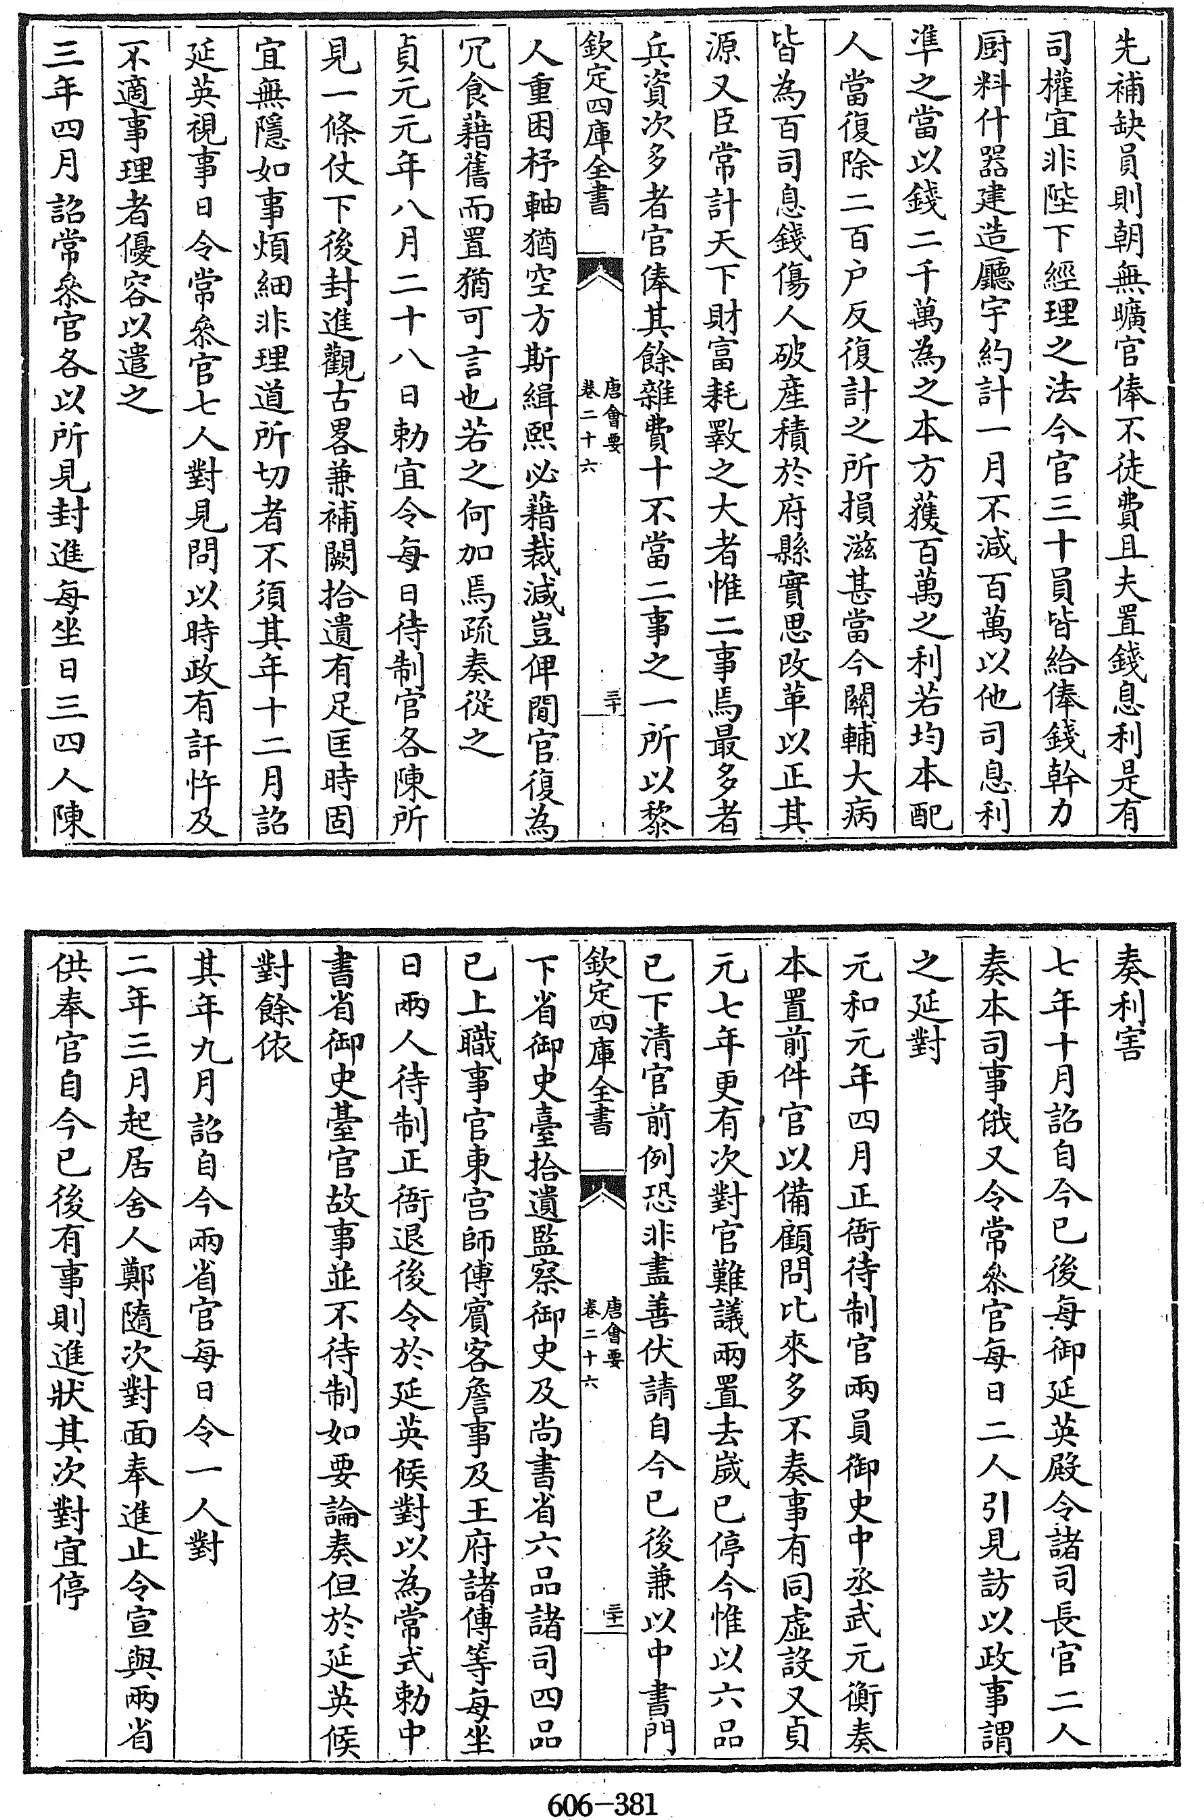 先補缺員則朝無曠官俸不徒費且夫置錢息利是有
司權宜非陛下經理之法今官三十員皆給俸錢幹力
厨料什器建造廳宇約計一月不減百萬以他司息利
準之當以錢二千萬為之本方獲百萬之利若均本配
人當復除二百户反復計之所損滋甚當今關輔大病
皆為百司息錢傷人破産積於府縣實思改革以正其
源又臣常計天下財富耗斁之大者惟二事焉最多者
兵資次多者官俸其餘雜費十不當二事之一所以黎
欽定四庫全書
唐會要
卷二十六
三十
人重困杼軸猶空方斯緝熙必藉裁減豈俾閒官復為
冗食藉舊而置猶可言也若之何加焉疏奏從之
貞元元年八月二十八日勅宜令每日待制官各陳所
見一條仗下後封進觀古畧兼補闕拾遺有足匡時固
宜無隱如事煩細非理道所切者不須其年十二月詔
延英視事日令常叅官七人對見問以時政有訐忤及
不適事理者優容以遣之
三年四月詔常叅官各以所見封進每坐日三四人陳
奏利害
七年十月詔自今已後每御延英殿令諸司長官二人
奏本司事俄又令常叅官每日二人引見訪以政事謂
之延對
元和元年四月正衙待制官兩員御史中丞武元衡奏
本置前件官以備顧問比來多不奏事有同虛設又貞
元七年更有次對官難議兩置去歲已停今惟以六品
已下清官前例恐非盡善伏請自今已後兼以中書門
欽定四庫全書
唐會要
卷二十六
三十一
下省御史臺拾遺監察御史及尚書省六品諸司四品
已上職事官東宮師傅賓客詹事及王府諸傅等每坐
日兩人待制正衙退後令於延英候對以為常式勅中
書省御史臺官故事並不待制如要論奏但於延英候
對餘依
其年九月詔自今兩省官每日令一人對
二年三月起居舍人鄭隨次對面奉進止令宣與兩省
供奉官自今已後有事則進狀其次對宜停
606-381